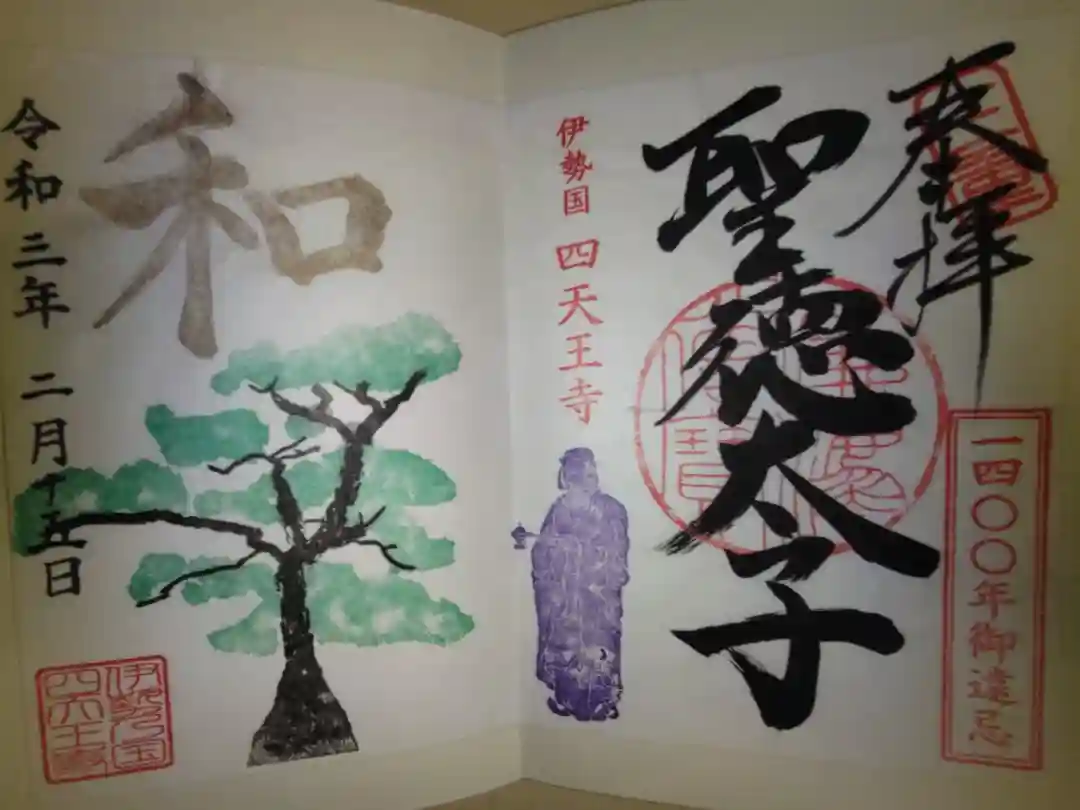 奉拝
一四〇〇年御遠忌
聖徳太子
伊勢国 四天王寺
和
令和三年 二月十五日
伊勢国
四天王寺